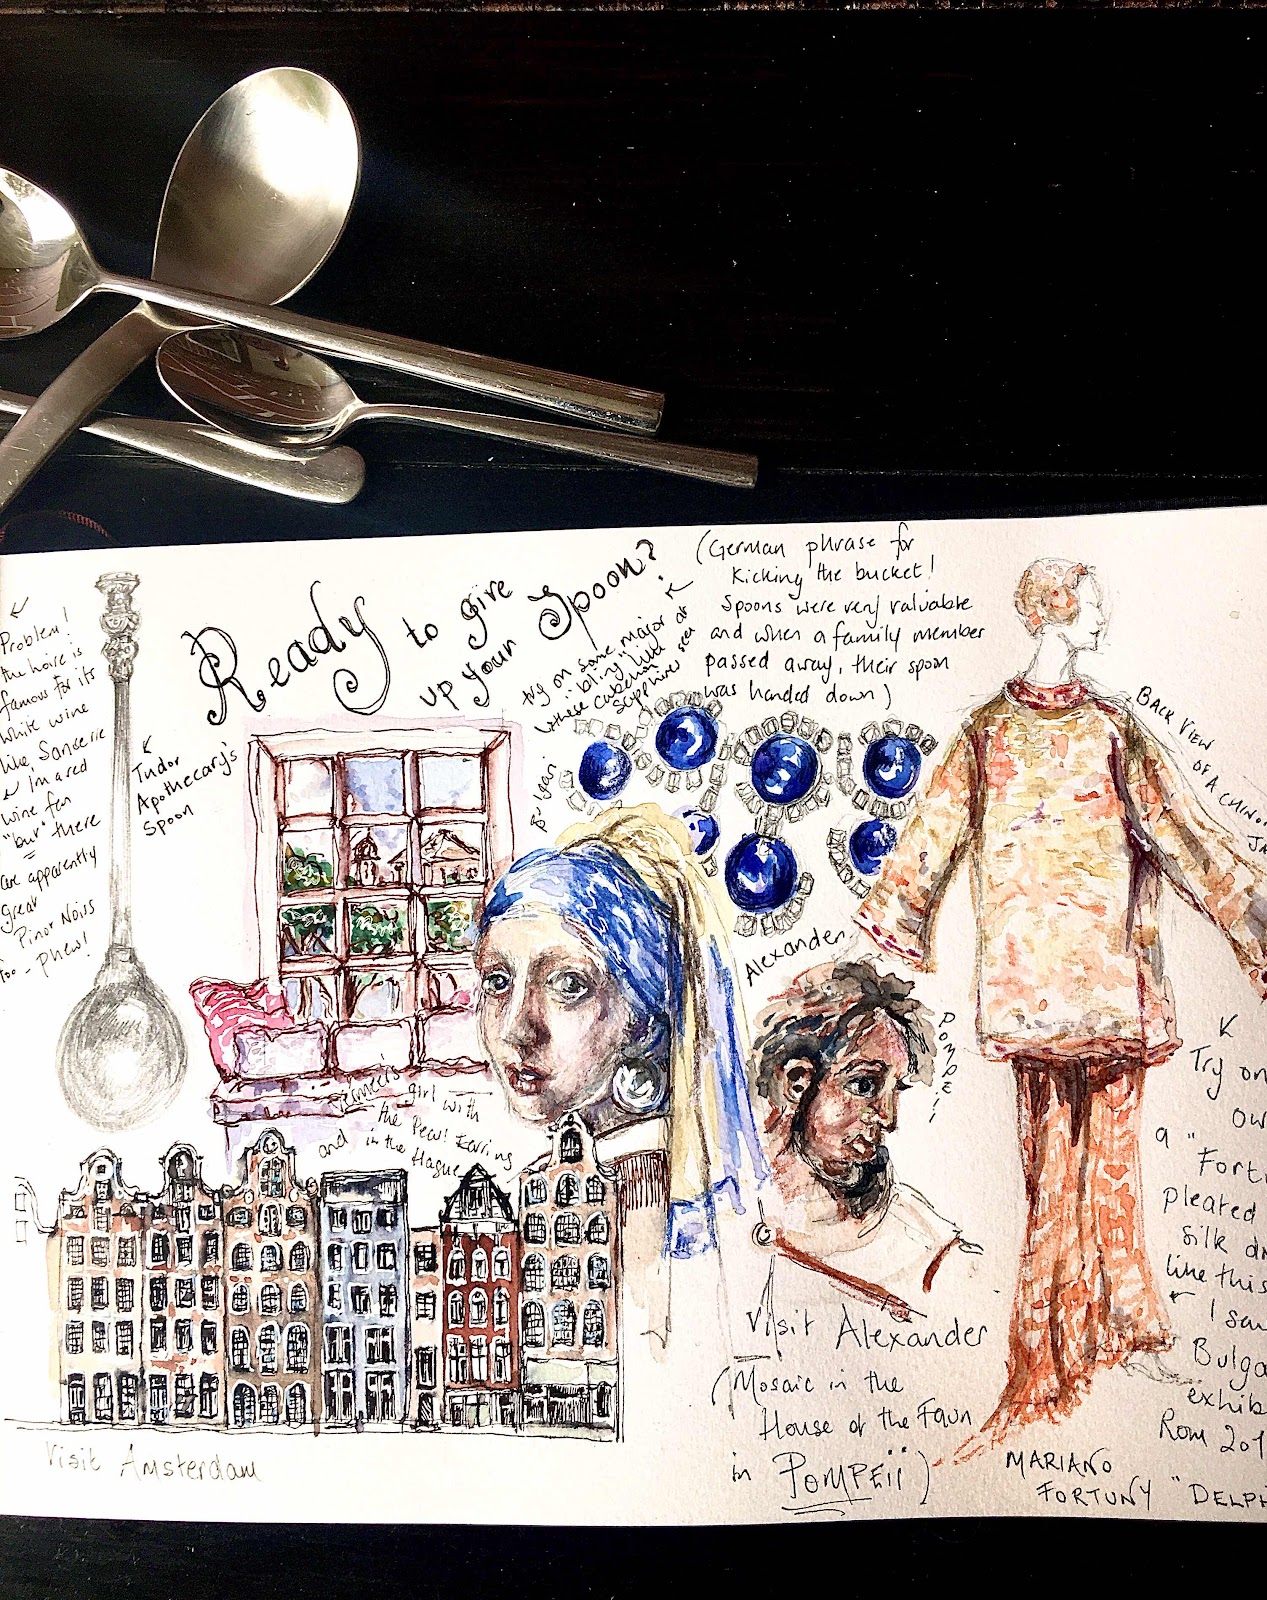 Ready to give
up your Spoon?
(German phrase for
kicking the bucket!
Spoons were very valuable
and when a family member
passed away, their spoon
was handed down)
Try on some major
"bling" like
these cabochon
sapphires at
Problem!
the Loire is
famous for its
white wine
like Sanserre
I'm a red
wine fan
"but" there
are apparently
great
Pinot Noirs
too - phew!
Tudor
Apothecary's
Spoon
Bulgari
Vermeer's girl with
the Pearl Earring
and in the Hague
Visit Amsterdam
Alexander
POMPEii
Visit Alexander
(Mosaic in the
House of the Faun
in POMPEii)
BACK VIEW
OF A
Try on
a "Fort
pleated
silk
like this
I
Bulga
exhib
Rom 201
MARIANO
FORTUNY "DELPH